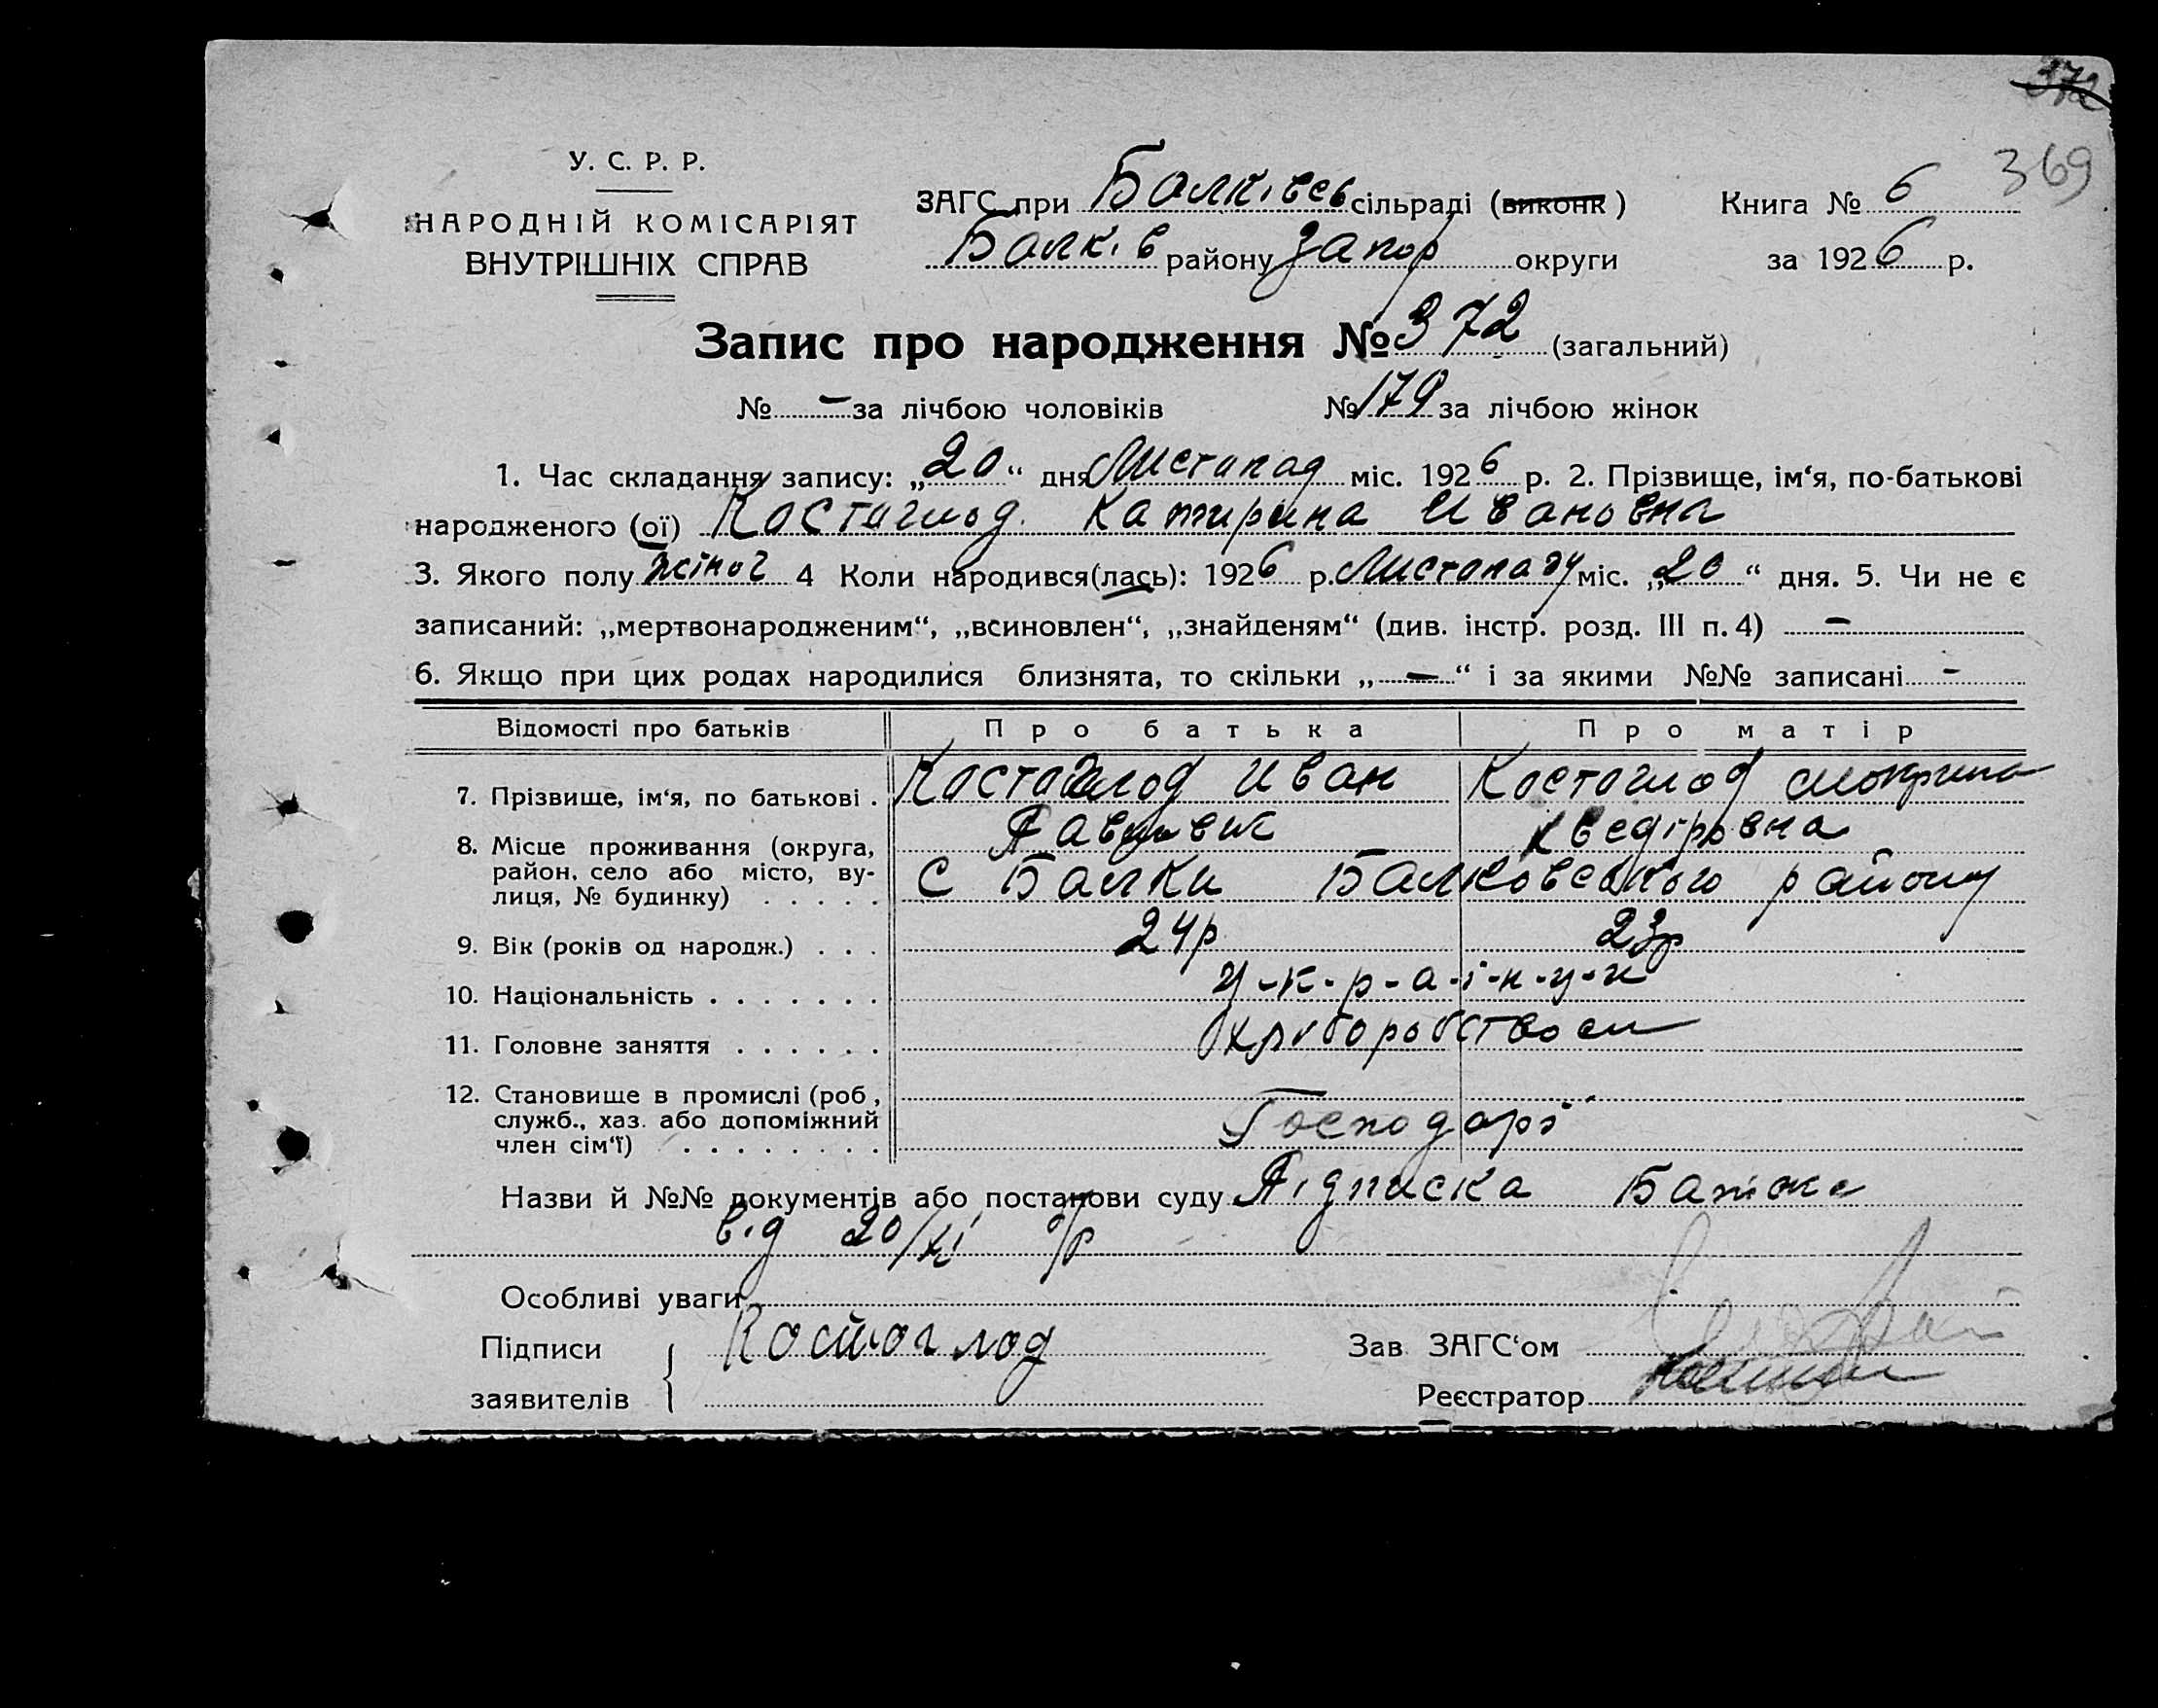 372
369
У. С. Р. Р.
НАРОДНІЙ КОМІСАРІЯТ
ВНУТРІШНІХ СПРАВ
ЗАГС при Балківсь сільраді (виконк) Книга № 6
Балків району Запор округи за 1926 р.
Запис про народження № 372 (загальний)
№ – за лічбою чоловіків № 179 за лічбою жінок
1. Час складання запису: „20“ дня Листопад міс. 1926 р. 2. Прізвище, ім‘я, по-батькові
народженого (ої) Костоглод Катирина Ивановна
3. Якого полу жіноч 4 Коли народився(лась): 1926 р. Листопаду міс. „20“ дня. 5. Чи не є
записаний: „мертвонародженим“, „всиновлен“, „знайденям“ (див. інстр. розд. III п. 4) –
6. Якщо при цих родах народилися близнята, то скільки „–“ і за якими №№ записані -
Відомості про батьків Про батька Про матір
7. Прізвище, ім‘я, по батькові . Костоглод Иван Костоглод Мокрина
Павлович Хведіровна
8. Місце проживання (округа, район, село або місто, вулиця, № будинку) . . . . . С Балки Балковського району
9. Вік (років од народж.) . . . 24р 23р
10. Національність . . . . . . . у-к-р-а-ї-н-ц-и
11. Головне заняття . . . . . . Хліборобством
12. Становище в промислі (роб, служб., хаз. або допоміжний член сім‘ї) . . . . . . . . Господарі
Назви й №№ документів або постанови суду Підписка Батька
від 20/XI с/р
Особливі уваги
Підписи заявителів Костоглод
Зав ЗАГС‘ом
Реєстратор